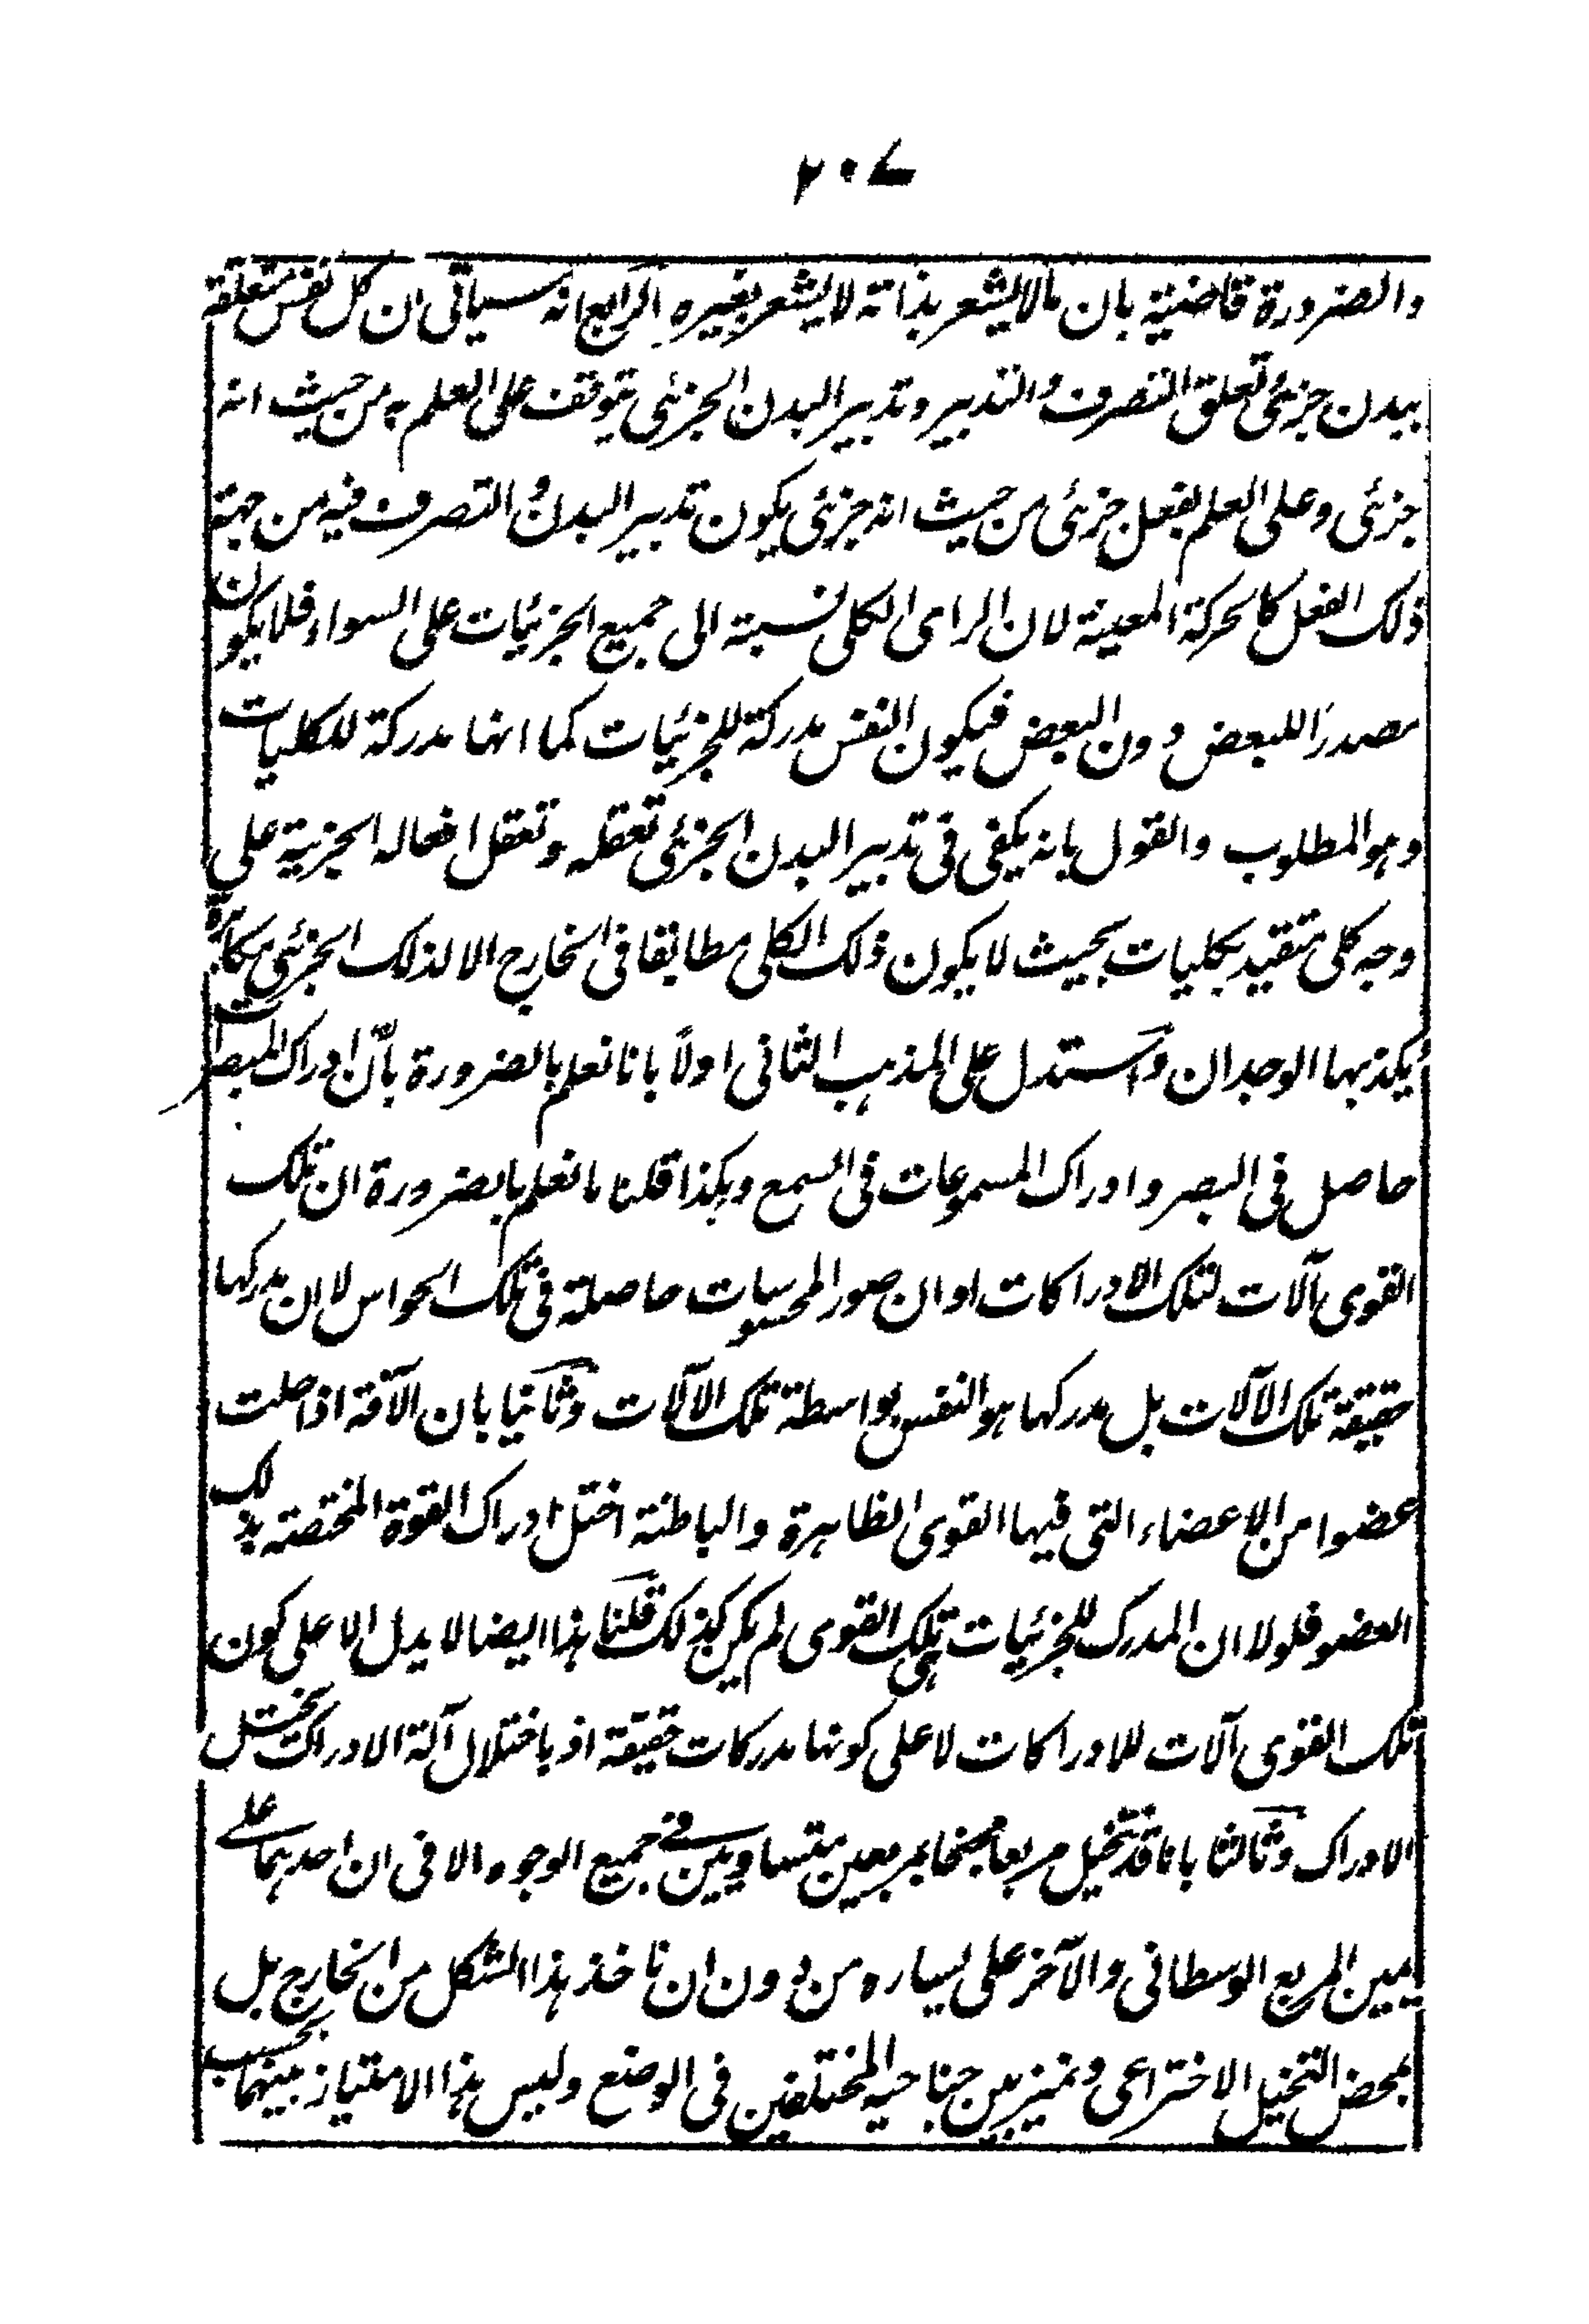 ٢٠٧
والضرورة قاضية بان مالا يشعر بذاته لا يشعر بغيره الرابع انه سياتى ان كل نفس متعلقة
ببدن جزئى تعلق التصرف والتدبير وتدبير البدن الجزئى يتوقف على العلم به من حيث انه
جزئى وعلى العلم بفعل جزئى من حيث انه جزئى يكون تدبير البدن والتصرف فيه من جهة
ذلك الفعل كالحركة المعينة لان الراى الكلى نسبته الى جميع الجزئيات على السواء فلا يكون
مصدرًا للبعض دون البعض فيكون النفس مدركة للجزئيات كما انها مدركة للكليات
وهو المطلوب والقول بانه يكفى فى تدبير البدن الجزئى تعقله وتعقل افعاله الجزئية على
وجه كلى متقيد بكليات بحيث لا يكون ذلك الكلى مطابقا فى الخارج الا لذلك الجزئى مكابرة
يكذبها الوجدان واستدل على المذهب الثانى اولاً بانا نعلم بالضرورة بأن ادراك المبصرات
حاصل فى البصر وادراك المسموعات فى السمع وهكذا قلنا ما نعلم بالضرورة ان تلك
القوى آلات لتلك الادراكات او ان صور المحسوسات حاصلة فى تلك الحواس لا ان مدركها
حقيقة تلك الآلات بل مدركها هو النفس بواسطة تلك الآلات وثانيا بان الآفة اذا حلت
عضوا من الاعضاء التى فيها القوى الظاهرة والباطنة اختل ادراك القوة المختصة بذلك
العضو فلولا ان المدرك للجزئيات هى تلك القوى لم يكن كذلك قلنا هذا ايضا لا يدل الا على كون
تلك القوى آلات للادراكات لا على كونها مدركات حقيقة اذ باختلال آلة الادراك يختل
الادراك وثالثا بانا قد نتخيل مربعا مجنحا بمربعين متساويين فى جميع الوجوه الا فى ان احدهما على
يمين المربع الوسطانى والآخر على يساره من دون ان ناخذ هذا الشكل من الخارج بل
بمحض التخيل الاختراعى ونميز بين جناحيه المختلفين فى الوضع وليس هذا الامتياز بينهما بحسب